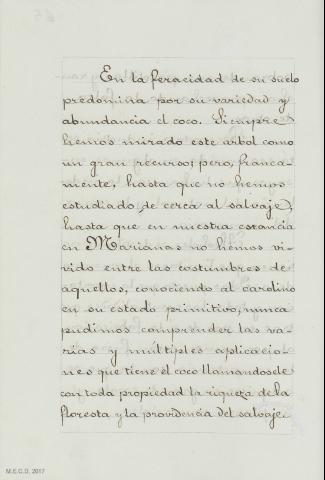 En la feracidad de su suelo
predomina por su variedad y
abundancia el coco. Siempre
hemos mirado este arbol como
un gran recurso; pero, franca-
mente, hasta que no hemos
estudiado de cerca al salvaje,
hasta que en nuestra estancia
en Marianas no hemos vi-
vido entre las costumbres de
aquellos, conociendo al carolino
en su estado primitivo, nunca
pudimos comprender las va-
rias y múltiples aplicacio-
nes que tiene el coco llamandosele
con toda propiedad la riqueza de la
floresta y la providencia del salvaje.
M.E.C.D. 2017